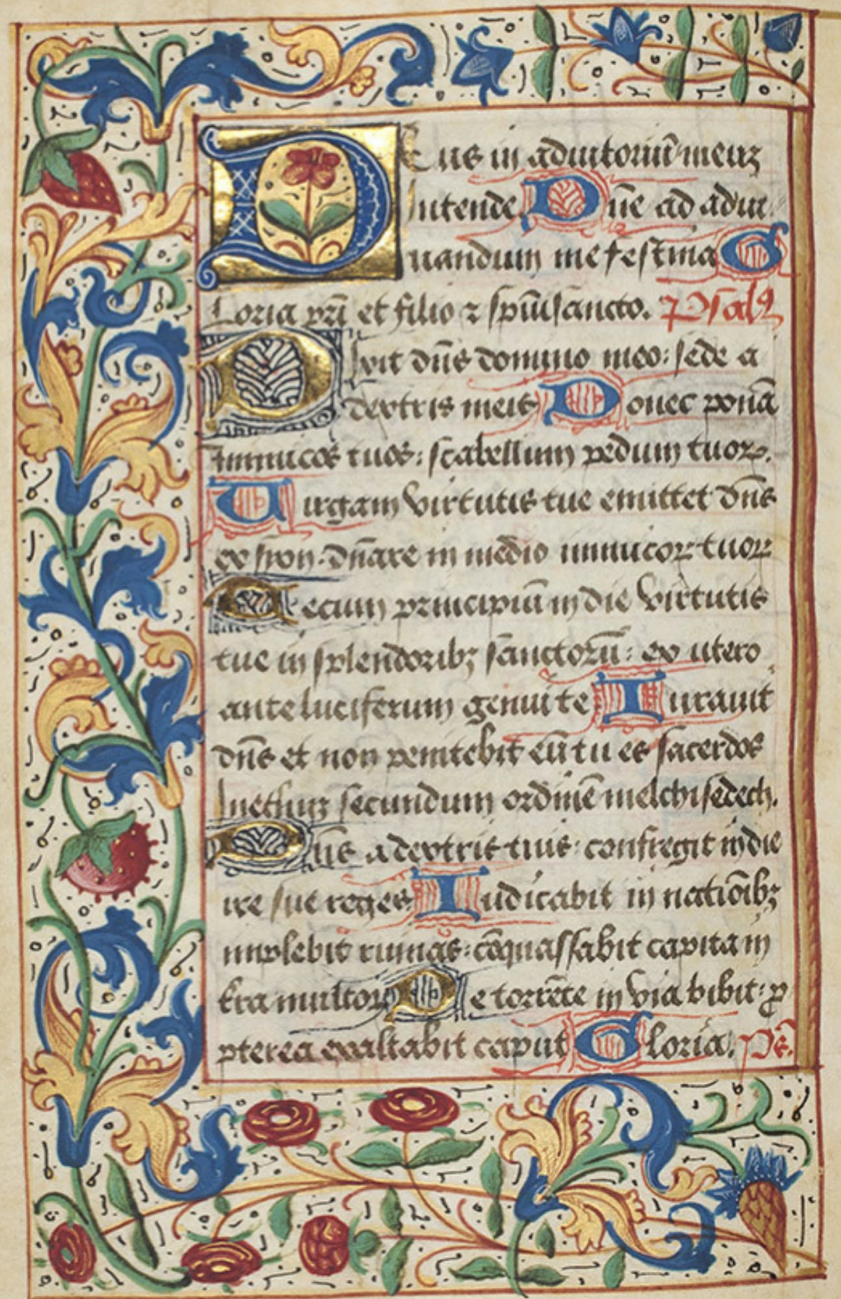 Deus in adiutoriū meuȝ
Intende. Dn̄e ad adiu
uandum me festina G
Loria pr̄i et filio ⁊ sp̄ūisancto. Psalꝰ
Dixit dn̄s domino meo: sede a
dextris meis Donec ponā
inimicos tuos: scabellum pedum tuoꝝ.
Uirgam virtutis tue emittet dn̄s
ex syon. dn̄are in medio inimicoꝝ tuoꝝ
Tecum principiū in die virtutis
tue in splendoribꝫ sanctorū: ex utero
ante luciferum genui te Iurauit
dn̄s et non penitebit eū tu es sacerdos
Inethuȝ secundum ordinē melchisedech.
Dn̄s a dextris tuis: confregit in die
ire sue reges Iudicabit in nationibꝫ
implebit ruinas: cōquassabit capita in
tr̄a multoꝝ De torrēte in via bibit: ꝓ
pterea exaltabit caput Gloria. Ps̄.